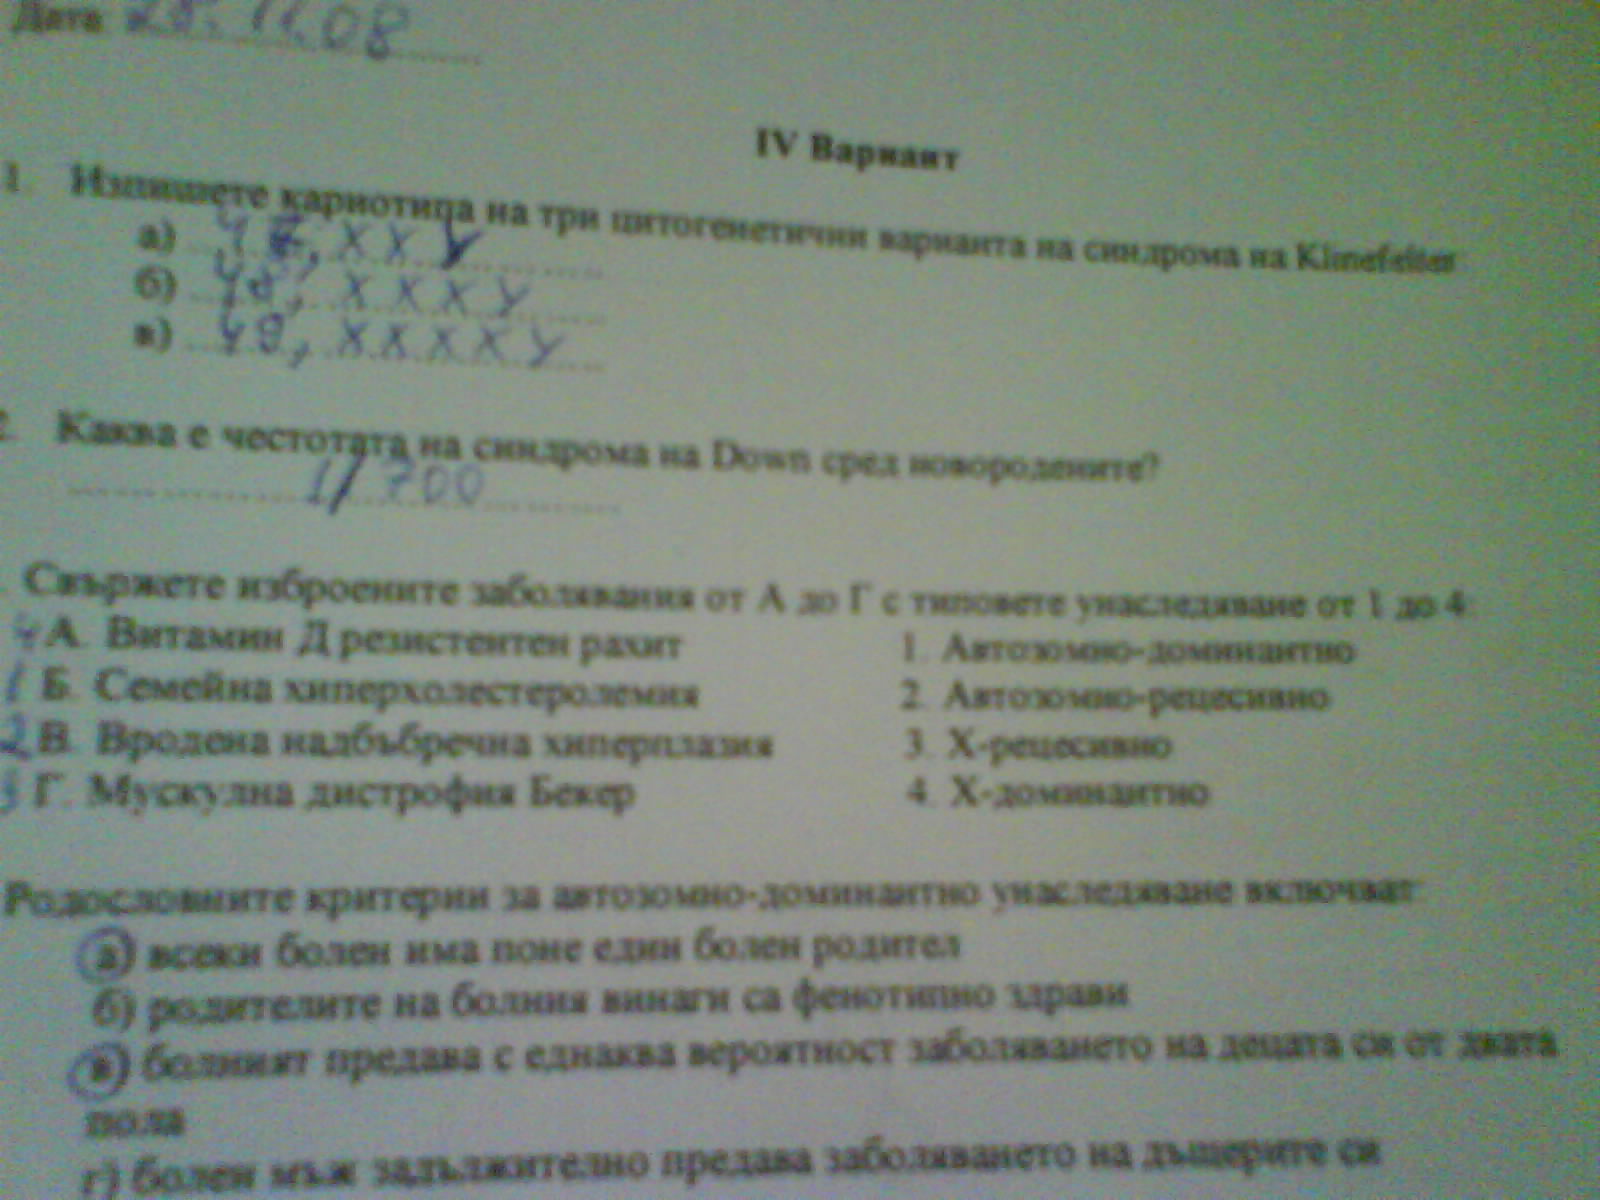 Дата 11.08
IV Вариант
1. Изпишете кариотипа на три цитогенетични варианта на синдрома на Klinefelter
а) 47, XXY
б) 48, XXXY
в) 49, XXXXY
2. Каква е честотата на синдрома на Down сред новородените?
1/700
Свържете изброените заболявания от А до Г с типовете унаследяване от 1 до 4:
4 А. Витамин Д резистентен рахит 1. Автозомно-доминантно
1 Б. Семейна хиперхолестеролемия 2. Автозомно-рецесивно
2 В. Вродена надбъбречна хиперплазия 3. Х-рецесивно
3 Г. Мускулна дистрофия Бекер 4. Х-доминантно
Родословните критерии за автозомно-доминантно унаследяване включват:
а) всеки болен има поне един болен родител
б) родителите на болния винаги са фенотипно здрави
в) болният предава с еднаква вероятност заболяването на децата си от двата
пола
г) болен мъж задължително предава заболяването на дъщерите си